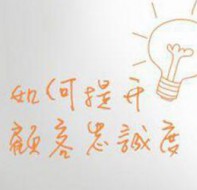 如何提升
顧客忠誠度